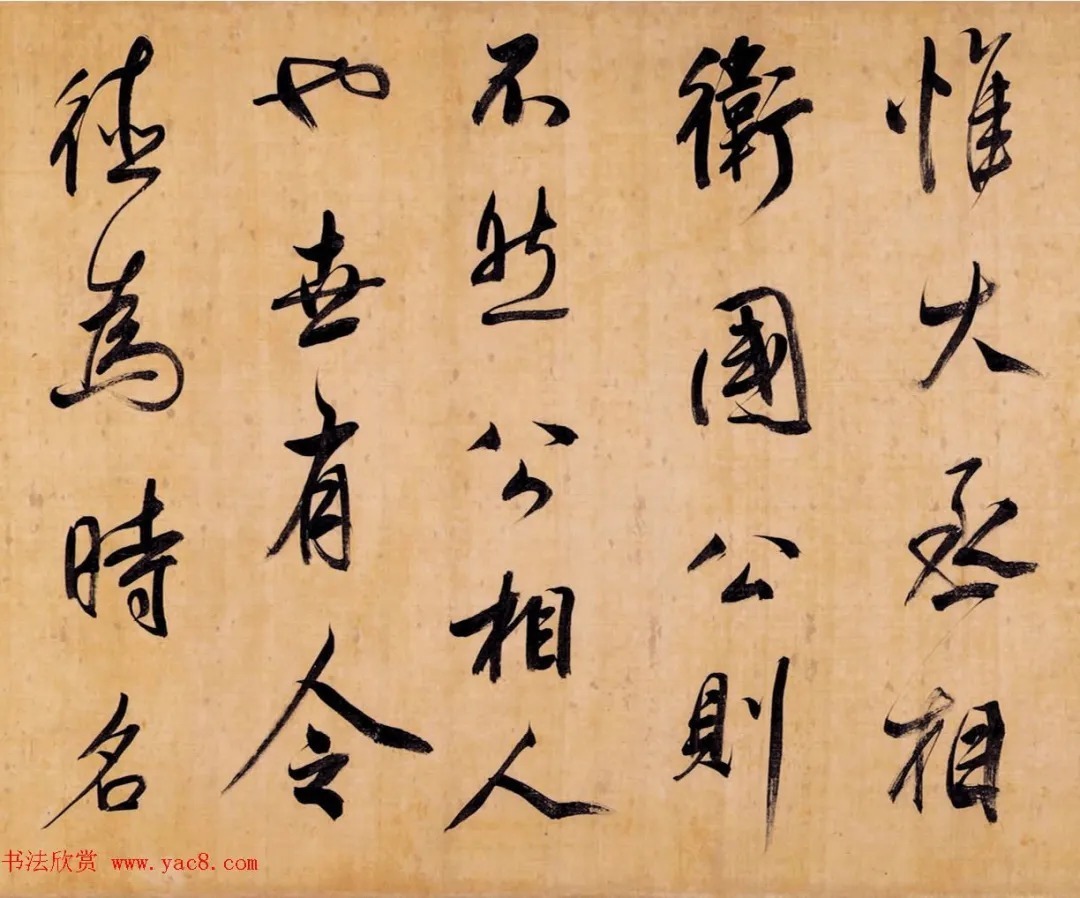 惟大丞相
衛國公則
不然公相人
也世有令
德為時名
书法欣赏 www.yac8.com